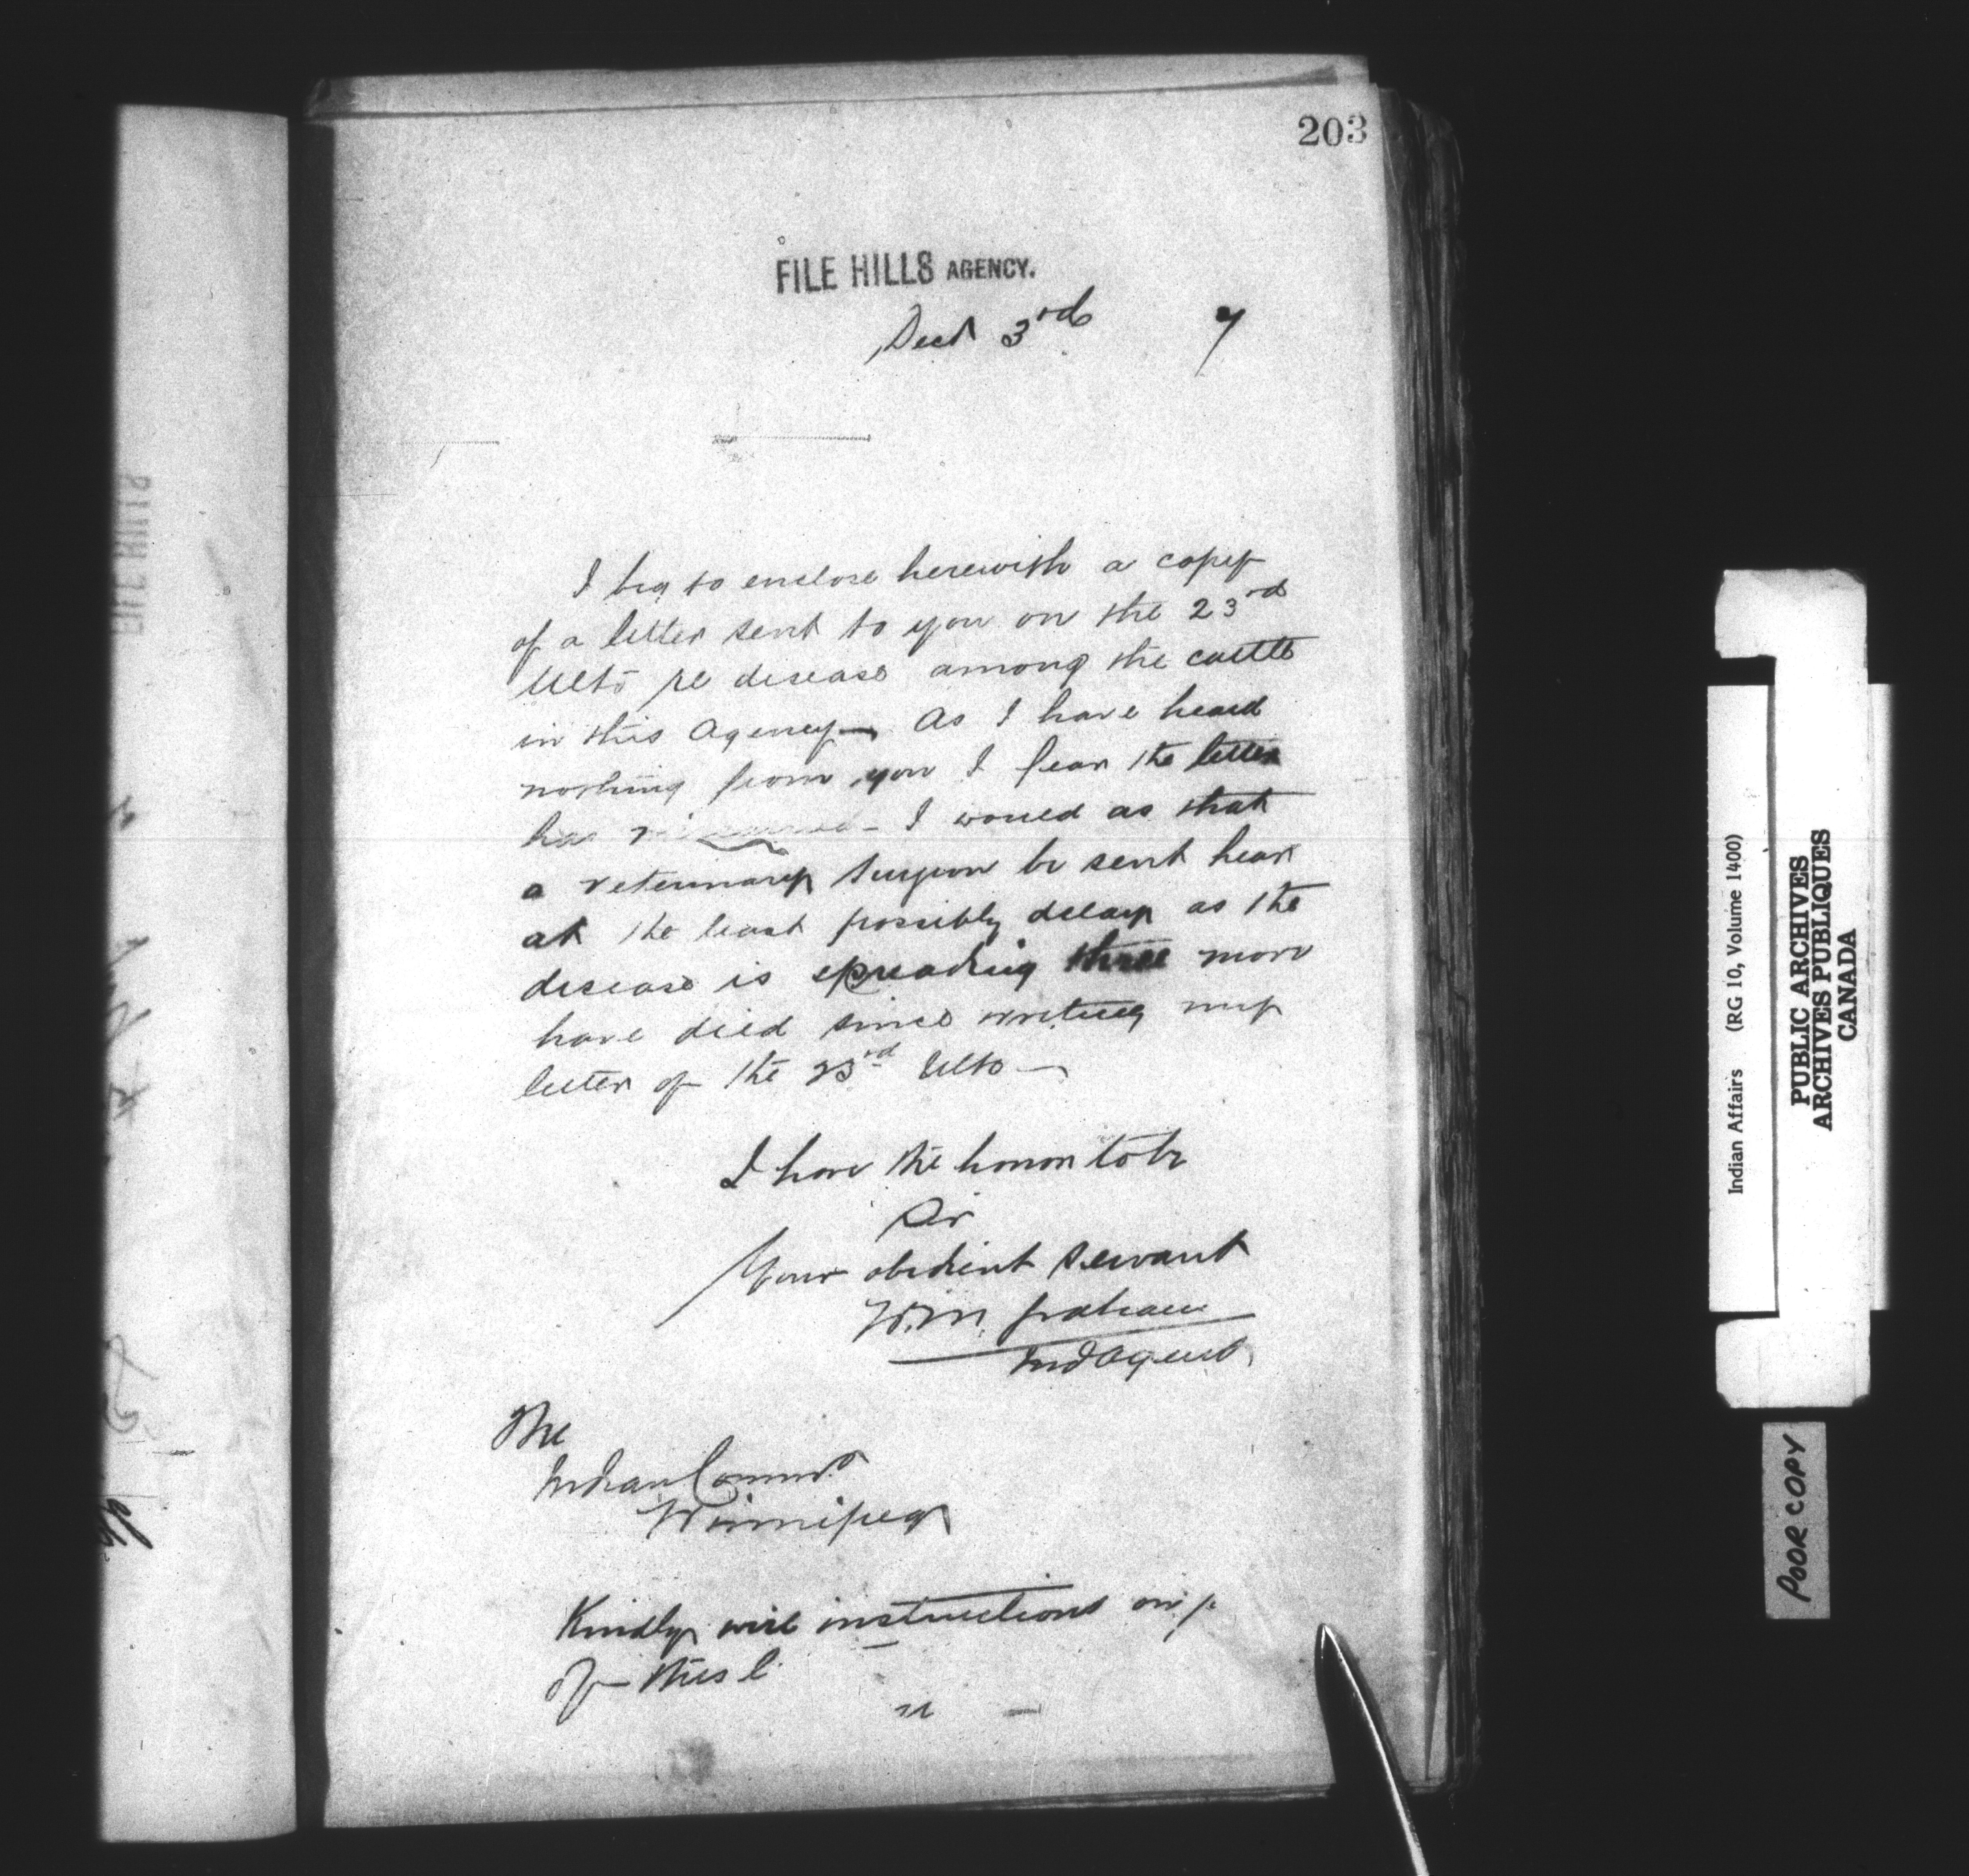 203
FILE HILLS AGENCY.
Decr 3rd 7
I beg to enclose herewith a copy
of a letter sent to you on the 23rd
Ulto re disease among the cattle
in this Agency — As I have heard
nothing from you I fear the letter
has I would as that
a veterinary surgeon be sent hear
at the least possibly delay as the
disease is spreading three more
have died since writing my
letter of the 23rd Ulto —
I have the honor to be
Sir
Your obedient servant
W.M. Graham
Ind Agent
The
Indian Commr
Winnipeg
Kindly wire instructions on
of this
FILE HILLS
Indian Affairs (RG 10, Volume 1400)
PUBLIC ARCHIVES
ARCHIVES PUBLIQUES
CANADA
POOR COPY